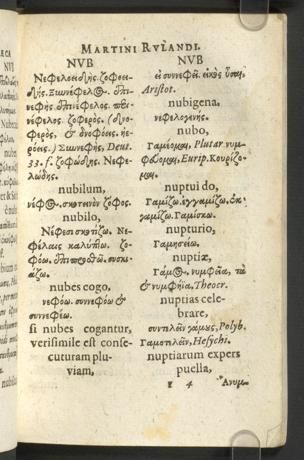 MARTINI RVLANDI.
NVB
Νεφελοειδής. ζοφοει-
δής. Ξυννέφελ@. ἐπι-
νεφής. ἐπινέφελος.
νέφελος. ζοφερός. (δνο-
φερὸς & δνοφόεις. ἠε-
ρόεις.) Συννεφής, Deut.
33. f. ζοφώδης. Νεφε-
λώδης.
nubilum,
νέφ@. σκοτεινὸν ζόφος.
nubilo,
Νέφεσι σκοτίζω. Νε-
φέλαις καλύπτω. ζο-
φόω.
nubes cogo,
νεφόω. συννεφόω &
συννεφέω.
si nubes cogantur,
verisimile est conse-
cuturam plu-
viam,
NVB
εἰ συννεφεῖ. εἰκὸς ὗσαι,
Aristot.
nubigena,
νεφελογενής.
nubo,
Γαμέομαι, Plutar. νυμ-
φεύομαι, Eurip. Κουρίζο-
μαι.
nuptui do,
Γαμίζω. ἐγγαμίζω. ἐκ-
γαμίζω. Γαμίσκω.
nupturio,
Γαμησείω.
nuptiæ,
Γάμ@. νυμφεῖα, τὰ
& νυμφήϊα, Theocr.
nuptias cele-
brare,
συντελεῖν γάμους, Polyb.
Γαμοτελεῖν, Hesych.
nuptiarum expers
puella,
4
Ἄνυμ-